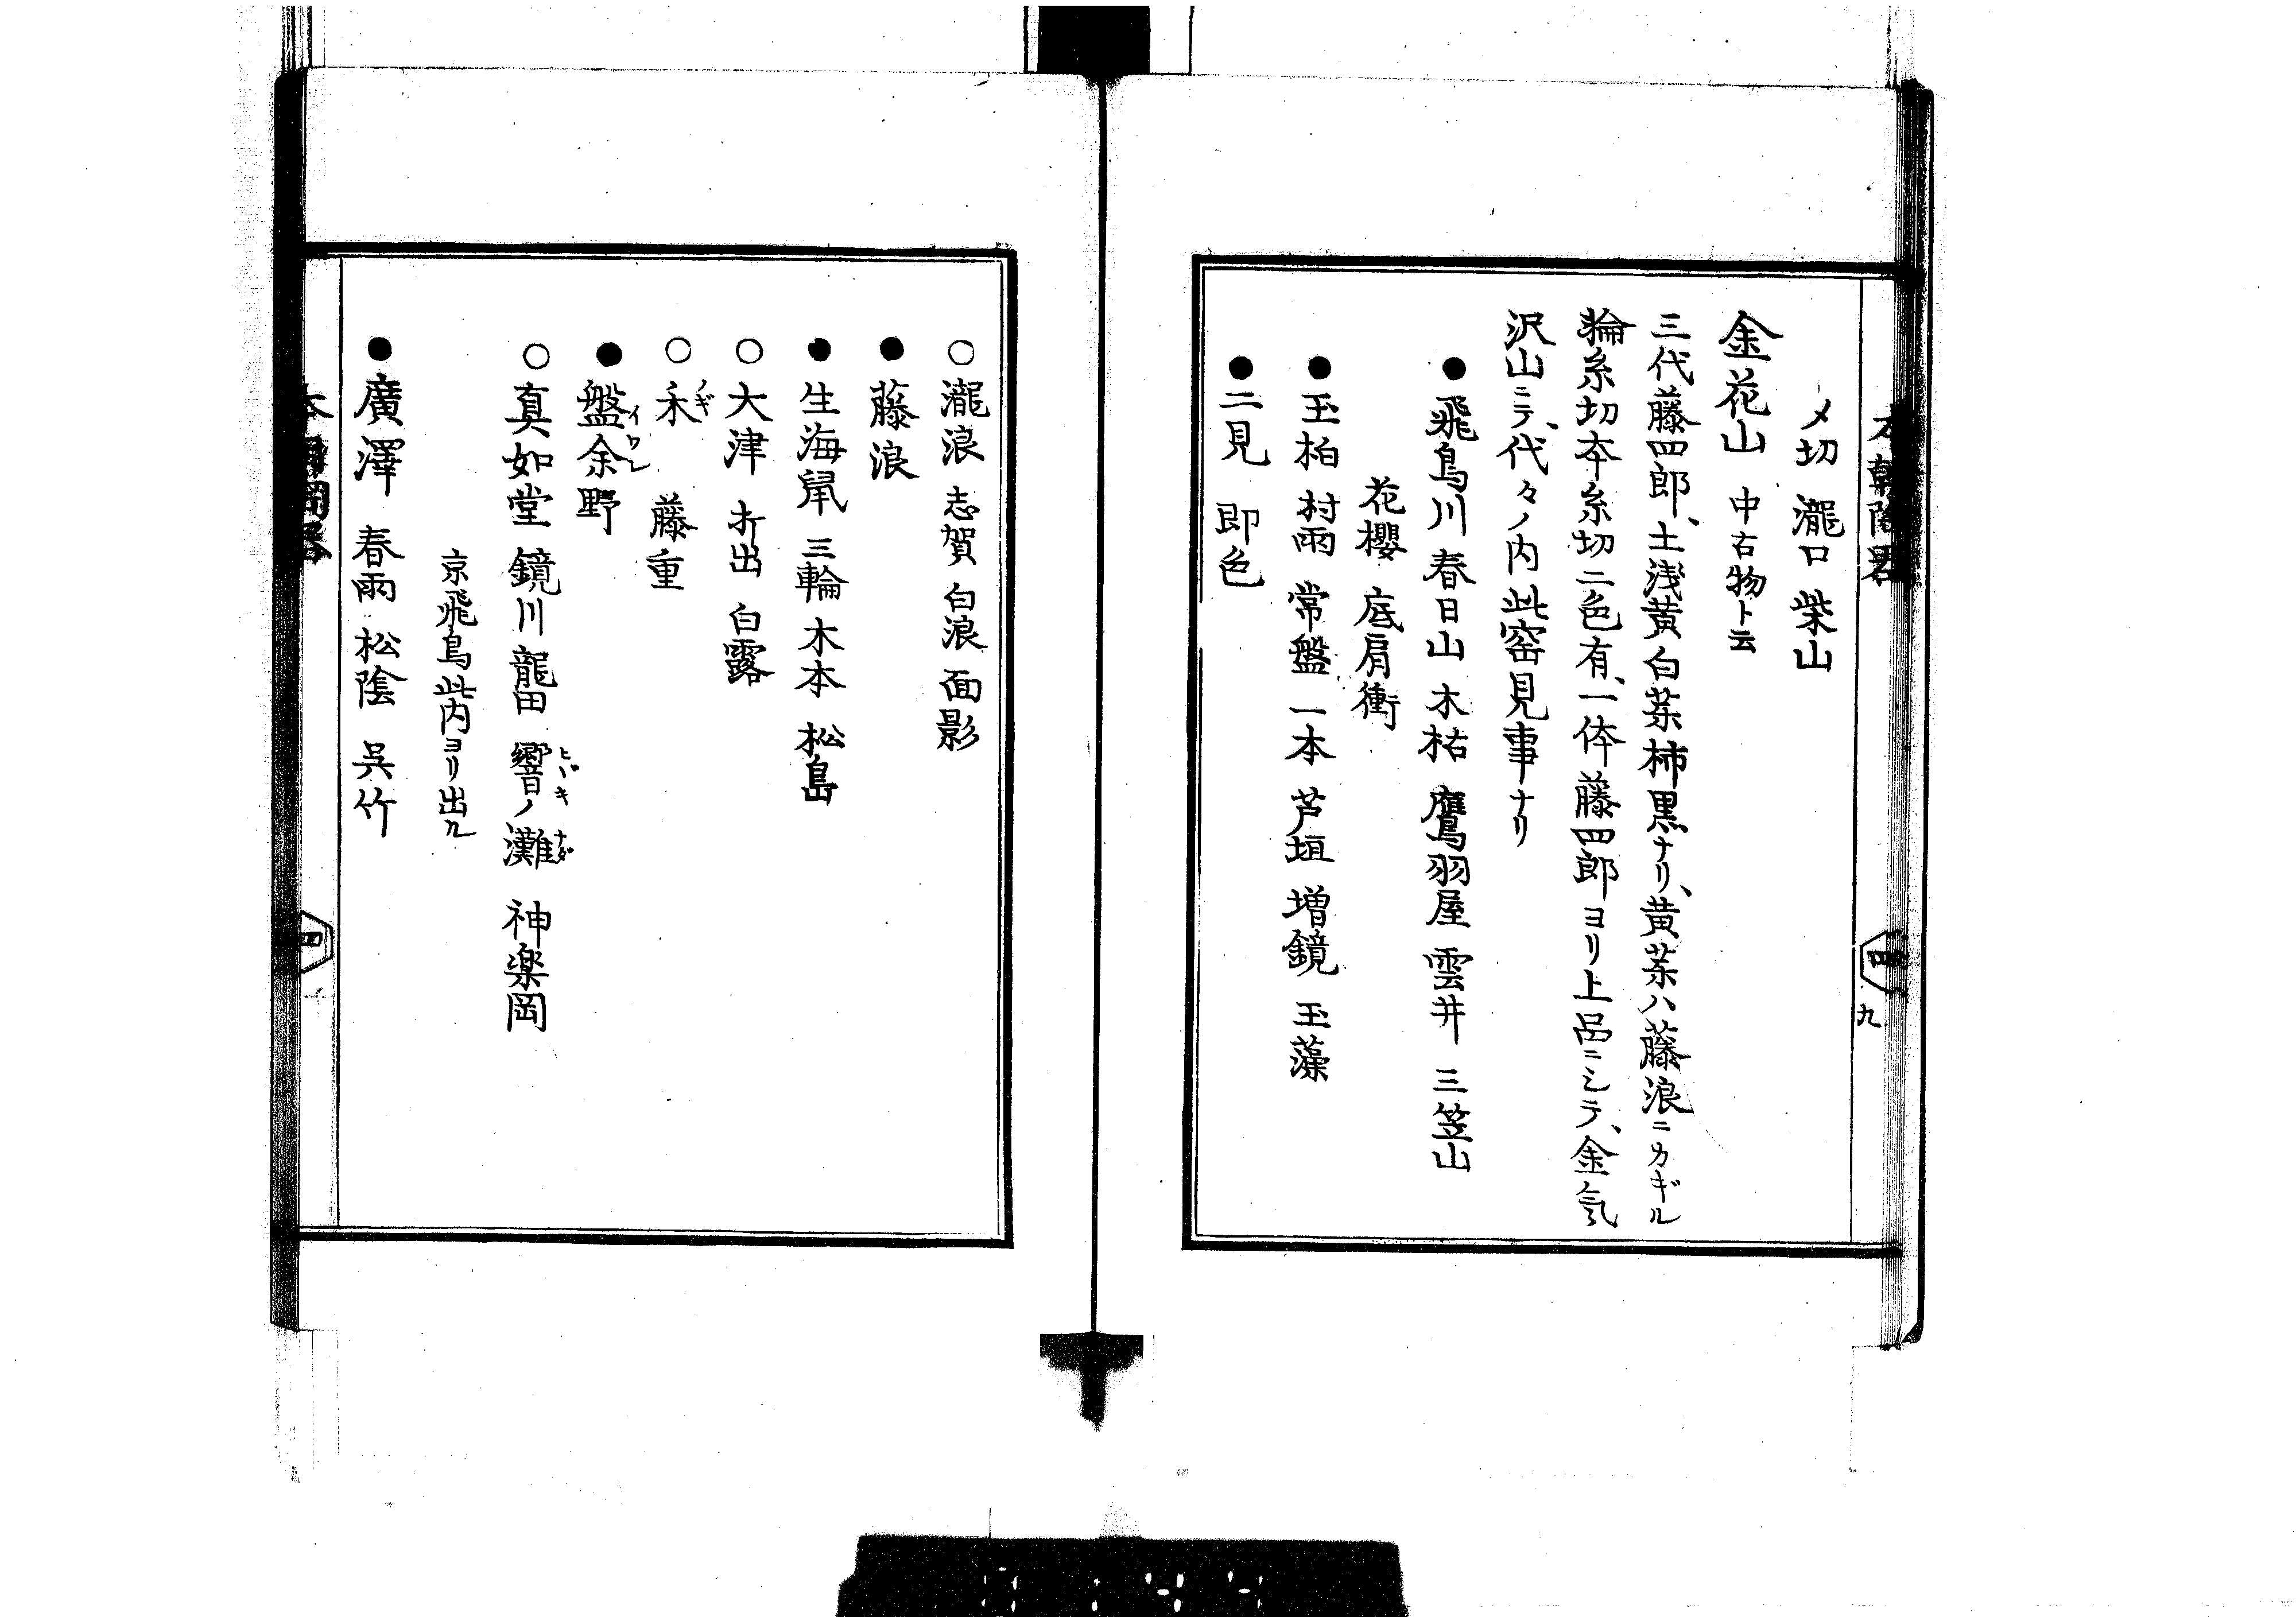 本朝陶器
四
九
〆切 瀧口 柴山
金花山 中古物ト云
三代藤四郎、土浅黄白茶柿黒ナリ、黄茶ハ藤浪ニカギル
輪糸切本糸切二色有、一体藤四郎ヨリ上品ニシテ、金気
沢山ニテ、代々ノ内此窑見事ナリ
●飛鳥川 春日山 木枯 鷹羽屋 雲井 三笠山
花櫻 底肩衝
●玉柏 村雨 常盤 一本 芦垣 増鏡 玉藻
●二見 即色
○瀧浪 志賀 白浪 面影
●藤浪
●生海鼠 三輪 木本 松島
○大津 打出 白露
○禾ノギ 藤重
●盤余野イワレ
○真如堂 鏡川 龍田 響ノ灘ヒヾキナダ 神楽岡
京飛鳥此内ヨリ出ル
●廣澤 春雨 松陰 呉竹
四